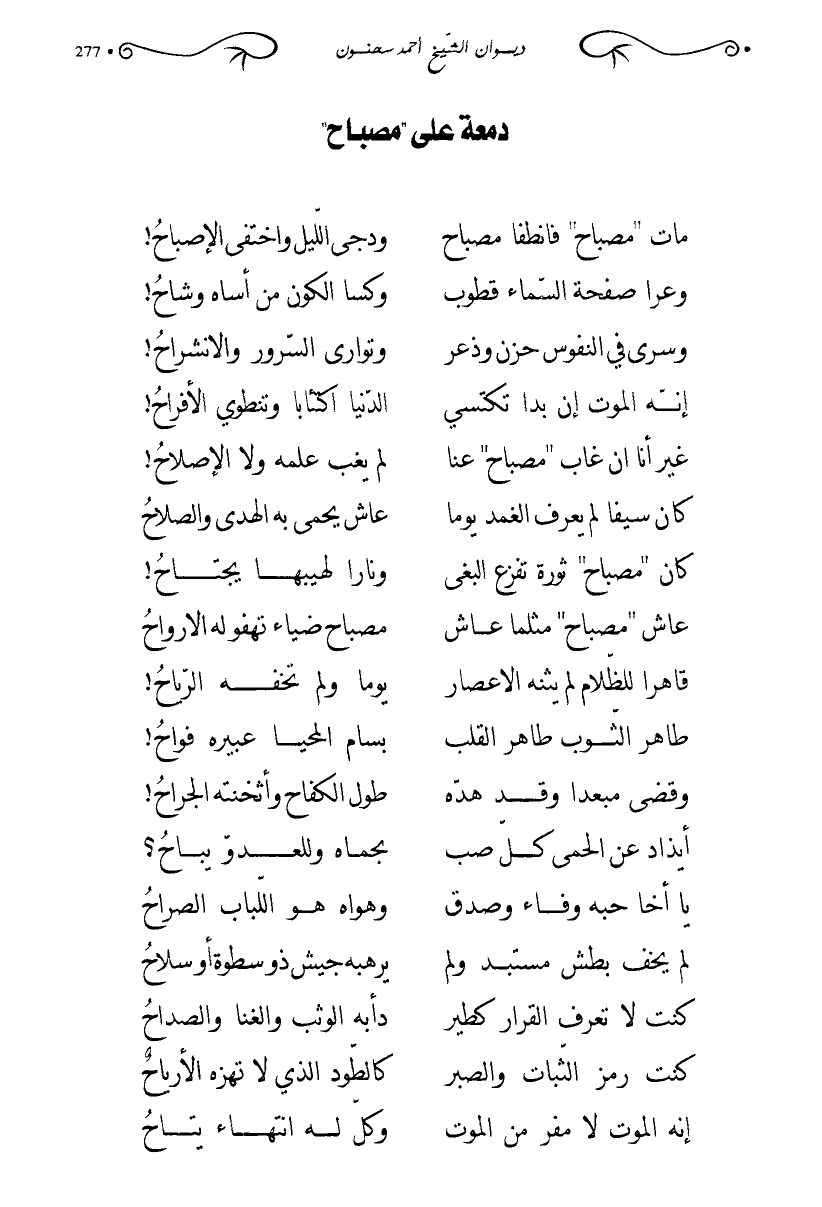 ديـوان الشّيخ أحمد سحنـون • 277
دمعة على "مصباح"
مات "مصباح" فانطفا مصباح ودجى اللّيل واختفى الإصباحُ!
وعرا صفحة السّماء قطوب وكسا الكون من أساه وشاحُ!
وسرى في النفوس حزن وذعر وتوارى السّرور والانشراحُ!
إنّـه الموت إن بدا تكتسي الدّنيا اكتئابا وتنطوي الأفراحُ!
غير أنا ان غاب "مصباح" عنا لم يغب علمه ولا الإصلاحُ!
كان سيفا لم يعرف الغمد يوما عاش يحمى به الهدى والصلاحُ
كان "مصباح" ثورة تفزع البغى ونارا لهيبهـا يجتـاحُ!
عاش "مصباح" مثلما عـاش مصباح ضياء تهفو له الارواحُ
قاهرا للظّلام لم يثنه الاعصار يوما ولم تخفـه الرّياحُ!
طاهر الثّـوب طاهر القلب بسام المحيـا عبيره فواحُ!
وقضى مبعدا وقـد هدّه طول الكفاح وأثخنته الجراحُ!
أيذاد عن الحمى كـلّ صب بحماه وللعـدوّ يبـاحُ؟
يا أخا حبه وفـاء وصدق وهواه هـو اللّباب الصراحُ
لم يخف بطش مستبـد ولم يرهبه جيش ذو سطوة أو سلاحُ
كنت لا تعرف القرار كطير دأبه الوثب والغنا والصداحُ
كنت رمز الثّبات والصبر كالطّود الذي لا تهزه الأرياحُ
إنه الموت لا مفر من الموت وكلّ لـه انتهـاء يتـاحُ